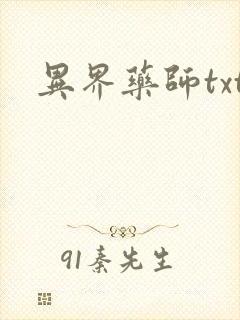 異界藥師txt
91秦先生